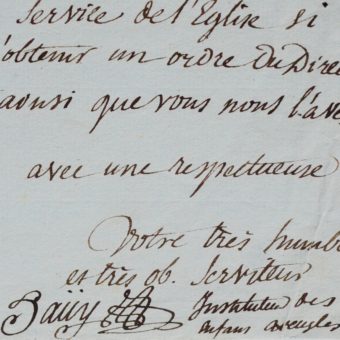 Service de l'Eglise si
l'obtenir un ordre du Direc
ainsi que vous nous l'ave
avec une respectueuse
Votre très humb
et très ob. Serviteur
haüy Instituteur des
enfans aveugles